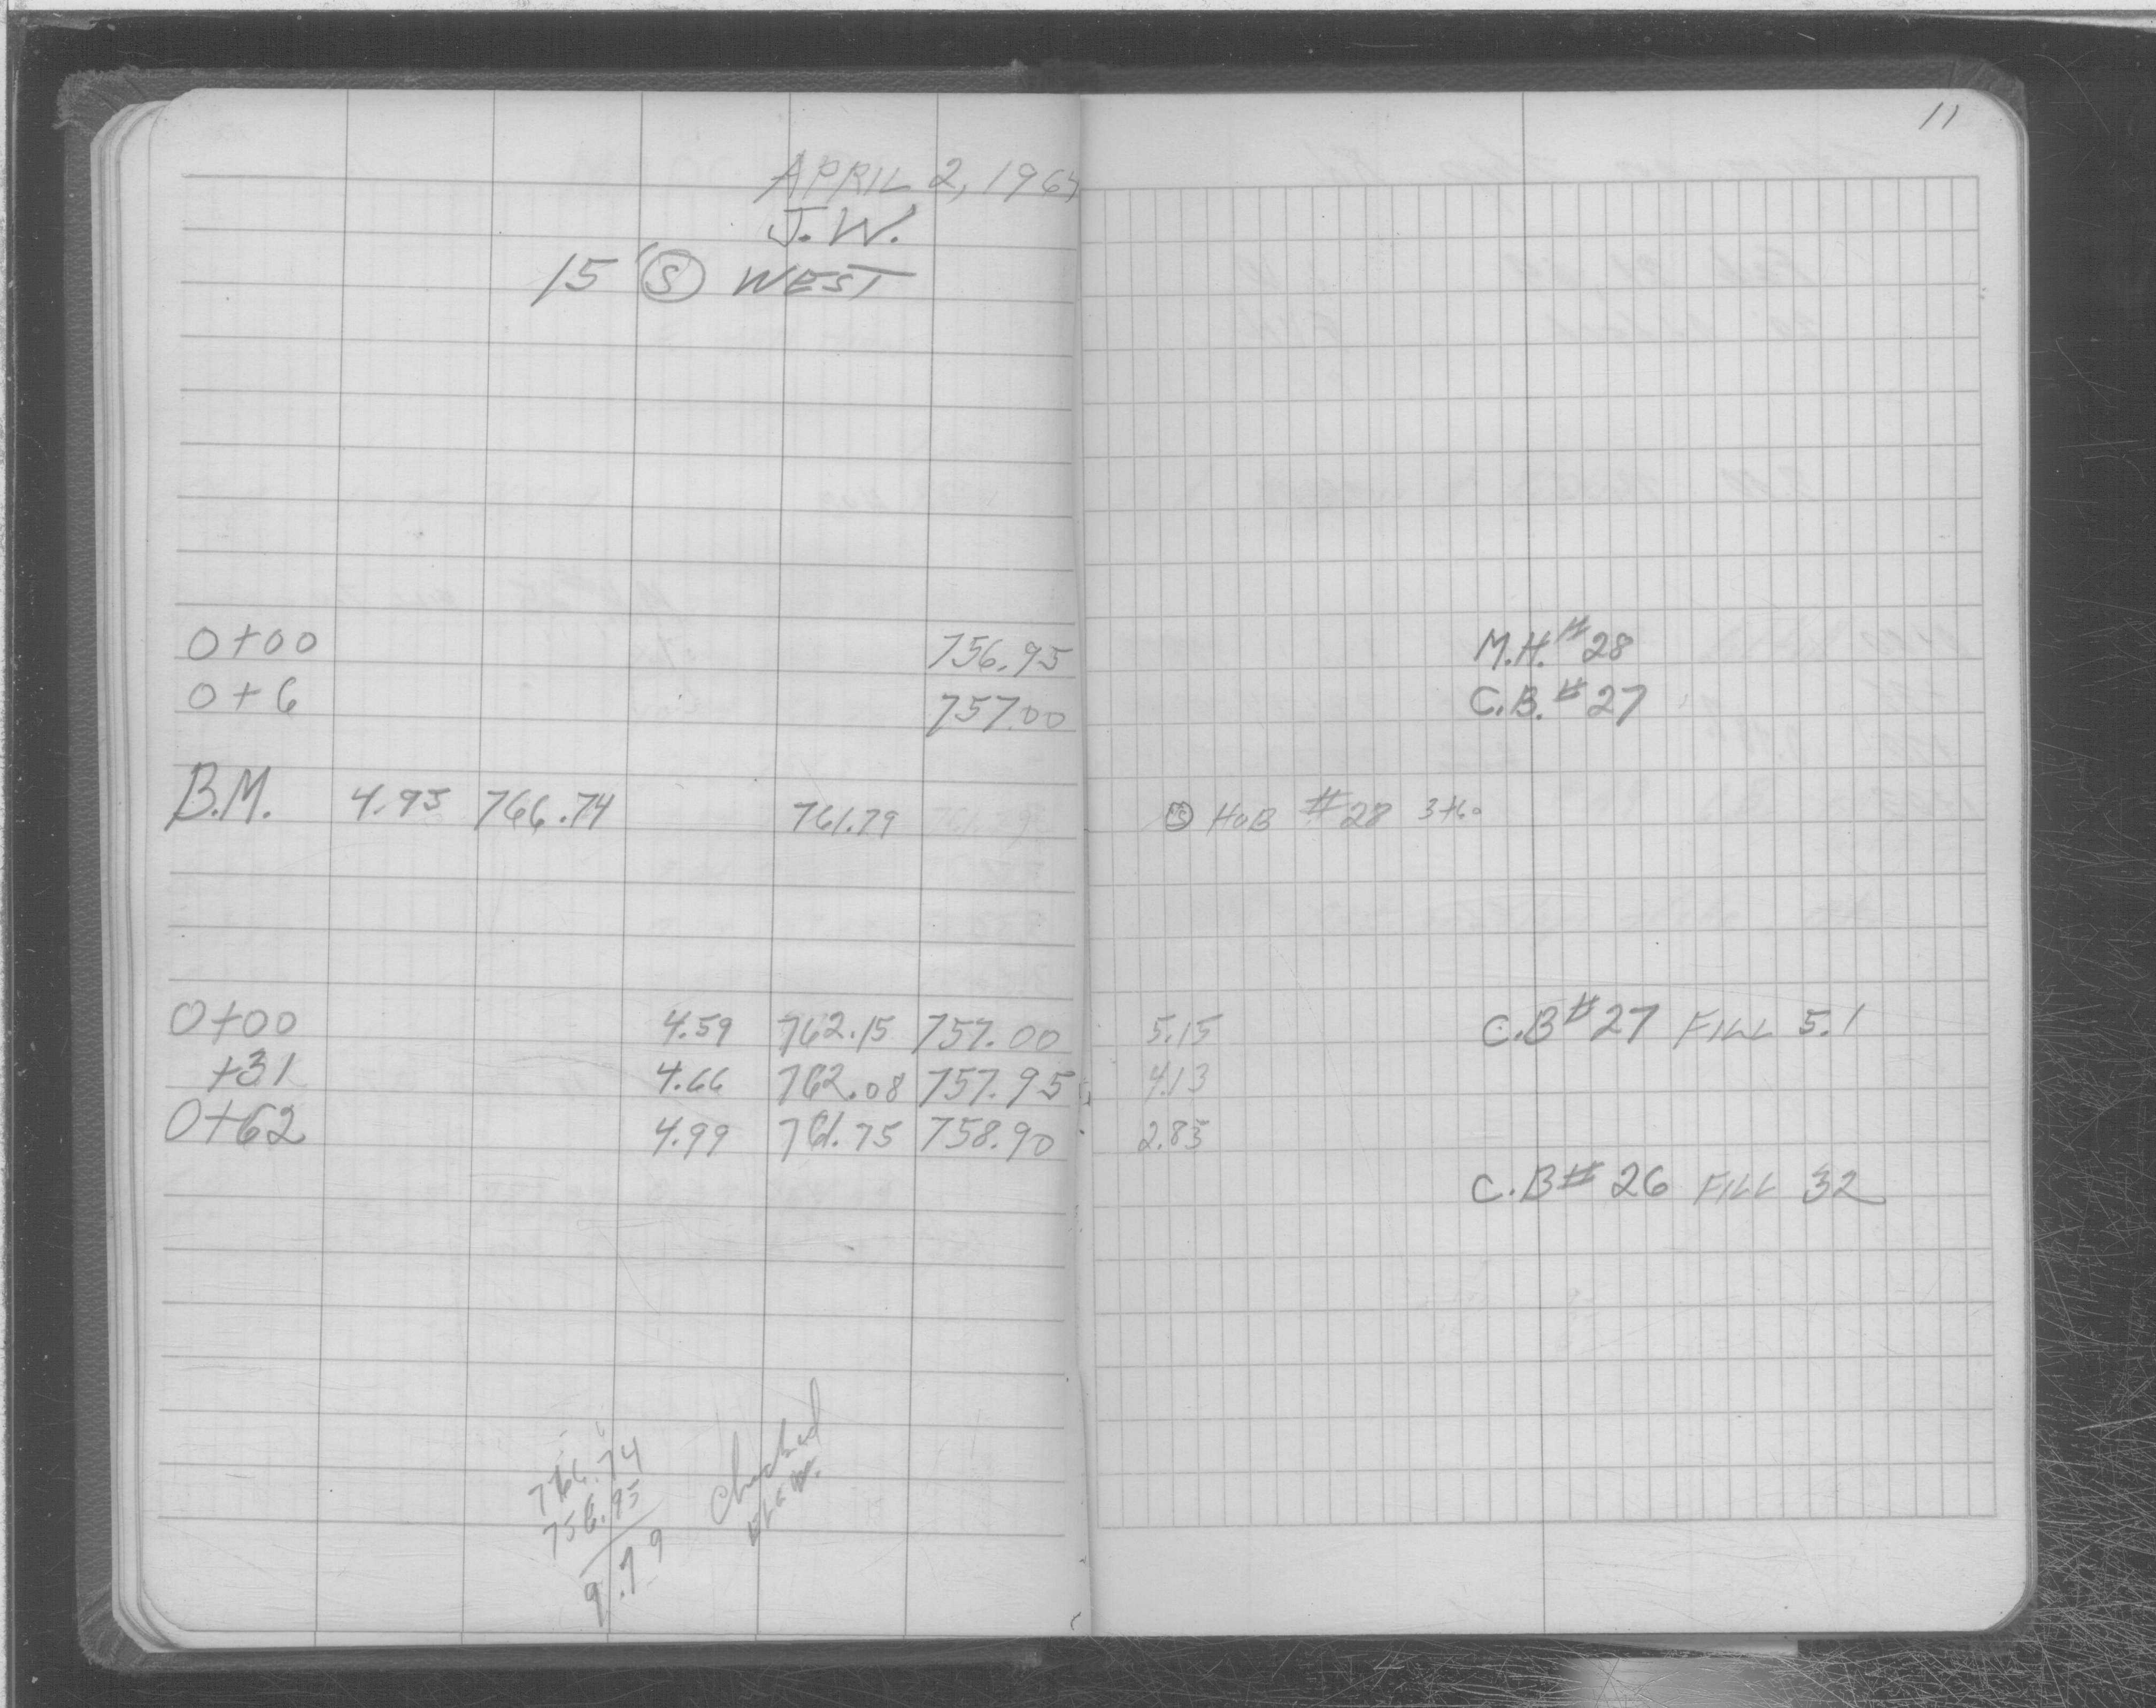 11
APRIL 2, 1964
J.W.
15' Ⓢ WEST
0+00 756.95 M.H. # 28
0+6 757.00 C.B. # 27
B.M. 4.95 766.74 761.79 HUB # 28 3+60
0+00 4.59 762.15 757.00 5.15 C.B # 27 FILL 5.1
+31 4.66 762.08 757.95 4.13
0+62 4.99 761.75 758.90 2.85
C.B # 26 FILL 32
766.74
756.95
9.79
checked